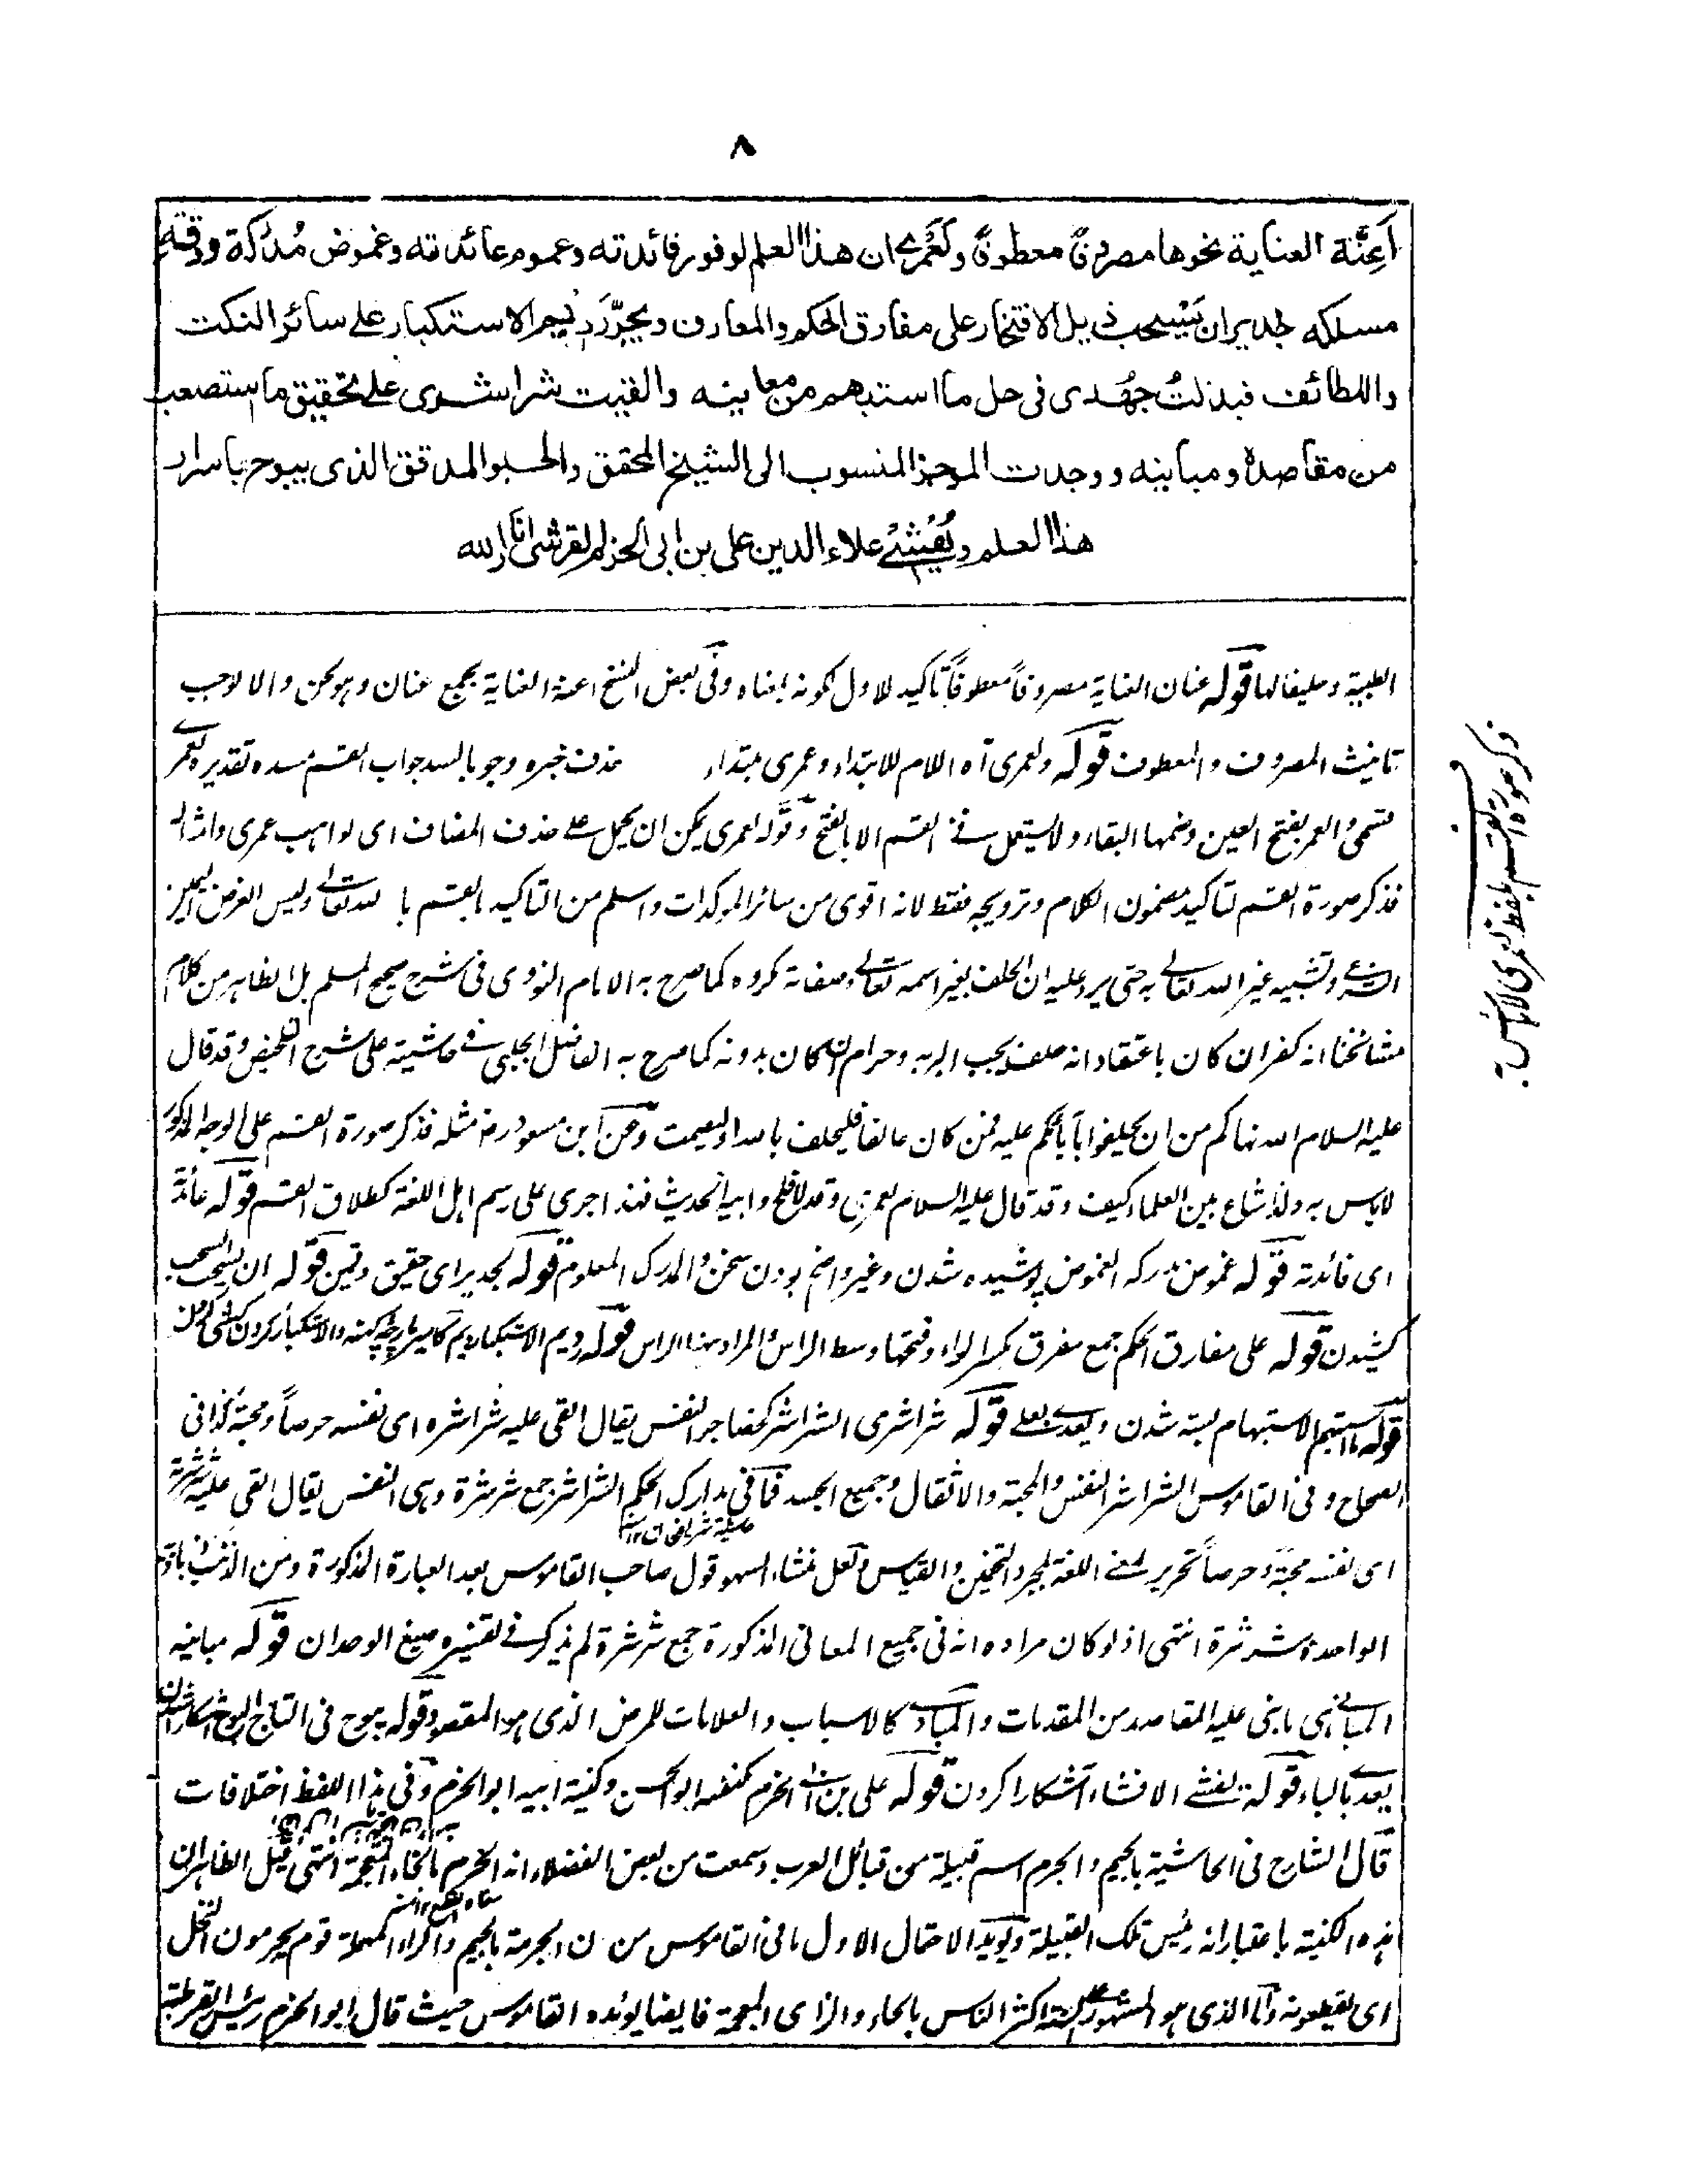 ٨
أعِنَّة العناية نحوها مصروفةً معطوفةً ولَعَمْرِي ان هذا العلم لوفور فائدته وعموم عائدته وغموض مُدْرَكه ودقة
مسلكه لجدير ان يَسْحب ذيل الافتخار على مفارق الحكم والمعارف ويجرَّ رديم الاستكبار على سائر النكت
واللطائف فبذلتُ جهُدى فى حل ما استبهم من معانيه والقيت شراشرى على تحقيق ما استصعب
من مقاصده ومبانيه ووجدت الموجز المنسوب الى الشيخ المحقق والحبر المدقق الذى يبوح باسرار
هذا العلم ويُفْشِيْ علاء الدين على بن ابى الحزم القرشى انار الله
الطبية وحليفا لها قوله عنان العناية مصروفاً معطوفاً تاكيد للاول لكونه بمعناه وفى بعض النسخ اعنة العناية بجمع عنان وهو لحن والا لوجب
تانيث المصروف والمعطوف قوله ولعمرى آه اللام للابتداء وعمرى مبتداء حذف خبره وجوبا لسد جواب القسم مسده تقديره لعمرى
قسمى والعمر بفتح العين وضمها البقاء ولا يستعمل فى القسم الا بالفتح وقوله لعمرى يمكن ان يحمل على حذف المضاف اى لواهب عمرى وامثاله
فذكر صورة القسم لتاكيد مضمون الكلام وترويجه فقط لانه اقوى من سائر الموكدات واسلم من التاكيد بالقسم با لله تعالى وليس الغرض اليمين
الشرعى وتشبيه غير الله تعالى به حتى يرد عليه ان الحلف بغير اسمه تعالى وصفاته مكروه كما صرح به الامام النووى فى شرح صحيح المسلم بل الظاهر من كلام
مشائخنا انه كفر ان كان باعتقاد انه حلف يجب البر به وحرام ان كان بدونه كما صرح به الفاضل الجلبى فى حاشيته على شرح التلخيص وقد قال
عليه السلام الله نهاكم من ان يحلفوا بآبائكم عليه فمن كان حالفا فليحلف بالله او ليصمت وعن ابن مسعود رض مثله فذكر صورة القسم على الوجه المذكور
لا باس به ولذا شاع بين العلماء كيف وقد قال عليه السلام لعمرى وقد افلح وابيه الحديث فهذا جرى على رسم اهل اللغة كطلاق القسم قوله عائدة
اى فائدته قوله غموض مدركه الغموض پوشيده شدن وغير واضح بودن سخن والمدرك المعلوم قوله لجدير اى حقيق وقمين قوله ان يسحب السحب
كشيدن قوله على مفارق الحكم جمع مفرق بكسر الراء وفتحها وسط الراس والمراد هنا الراس قوله رديم الاستكبار رديم كامير پارچه كهنه والاستكبار كردن كشى كردن
قوله ما استبهم الاستبهام بسته شدن ويعدى بعلى قوله شراشرى الشراشر كحضاجر النفس يقال القى عليه شراشره اى نفسه حرصاً ومحبة كذا فى
الصحاح وفى القاموس الشراشر النفس والمحبة والاثقال وجميع الجسد فما فى مدارك الحكم الشراشر جمع شرشرة وهى النفس يقال القى عليه شرشرة
اى نفسه محبة وحرصاً تحرير لمعنى اللغة بمجرد التخمين والقياس ولعل منشاء السهو قول صاحب القاموس بعد العبارة المذكورة ومن الذنب ذباذبه
الواحدة شرشرة انتهى اذ لو كان مراده انه فى جميع المعانى المذكورة جمع شرشرة لم يذكر فى تفسيره صيغ الوحدان قوله مبانيه
المبانى هى ما بنى عليه المقاصد من المقدمات والمبادى كالاسباب والعلامات للمرض الذى هو المقصود قوله يبوح فى التاج البوح آشكارا شدن
يعدى بالباء قوله يفشى الافشاء آشكارا كردن قوله على بن ابى الحزم كنفسه ابو الحسن وكنية ابيه ابو الحزم وفى هذا اللفظ اختلافات
قال الشارح فى الحاشية بالجيم والجرم اسم قبيلة من قبائل العرب وسمعت من بعض الفضلاء انه الخرم بالخاء المعجمة انتهى قيل الظاهر ان
هذه الكنية باعتبار انه رئيس تلك القبيلة ويويد الاحتمال الاول ما فى القاموس من ن الجرمة بالجيم والراء المهملة قوم يجرمون النخل
اى يقطعونه واما الذى هو المشهور على السنة اكثر الناس بالحاء والزاى المعجمة فايضا يوئده القاموس حيث قال ابو الحزم رئيس القرطبة
ذكر صورة القسم بلفظ لعمرى لا باس به